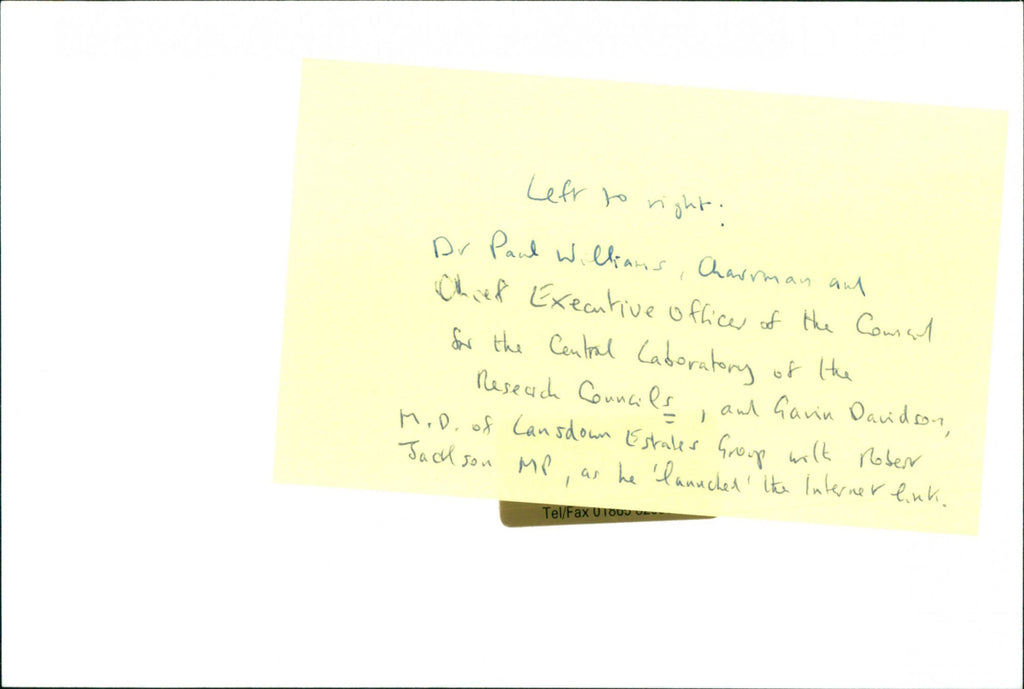 Left to right:
Dr Paul Williams, Chairman and
Chief Executive Officer of the Council
for the Central Laboratory of the
Research Councils, and Gavin Davidson,
M.D. of Lansdown Estates Group with Robert
Jackson MP, as he 'launched' the Internet link.
Tel/Fax 01865